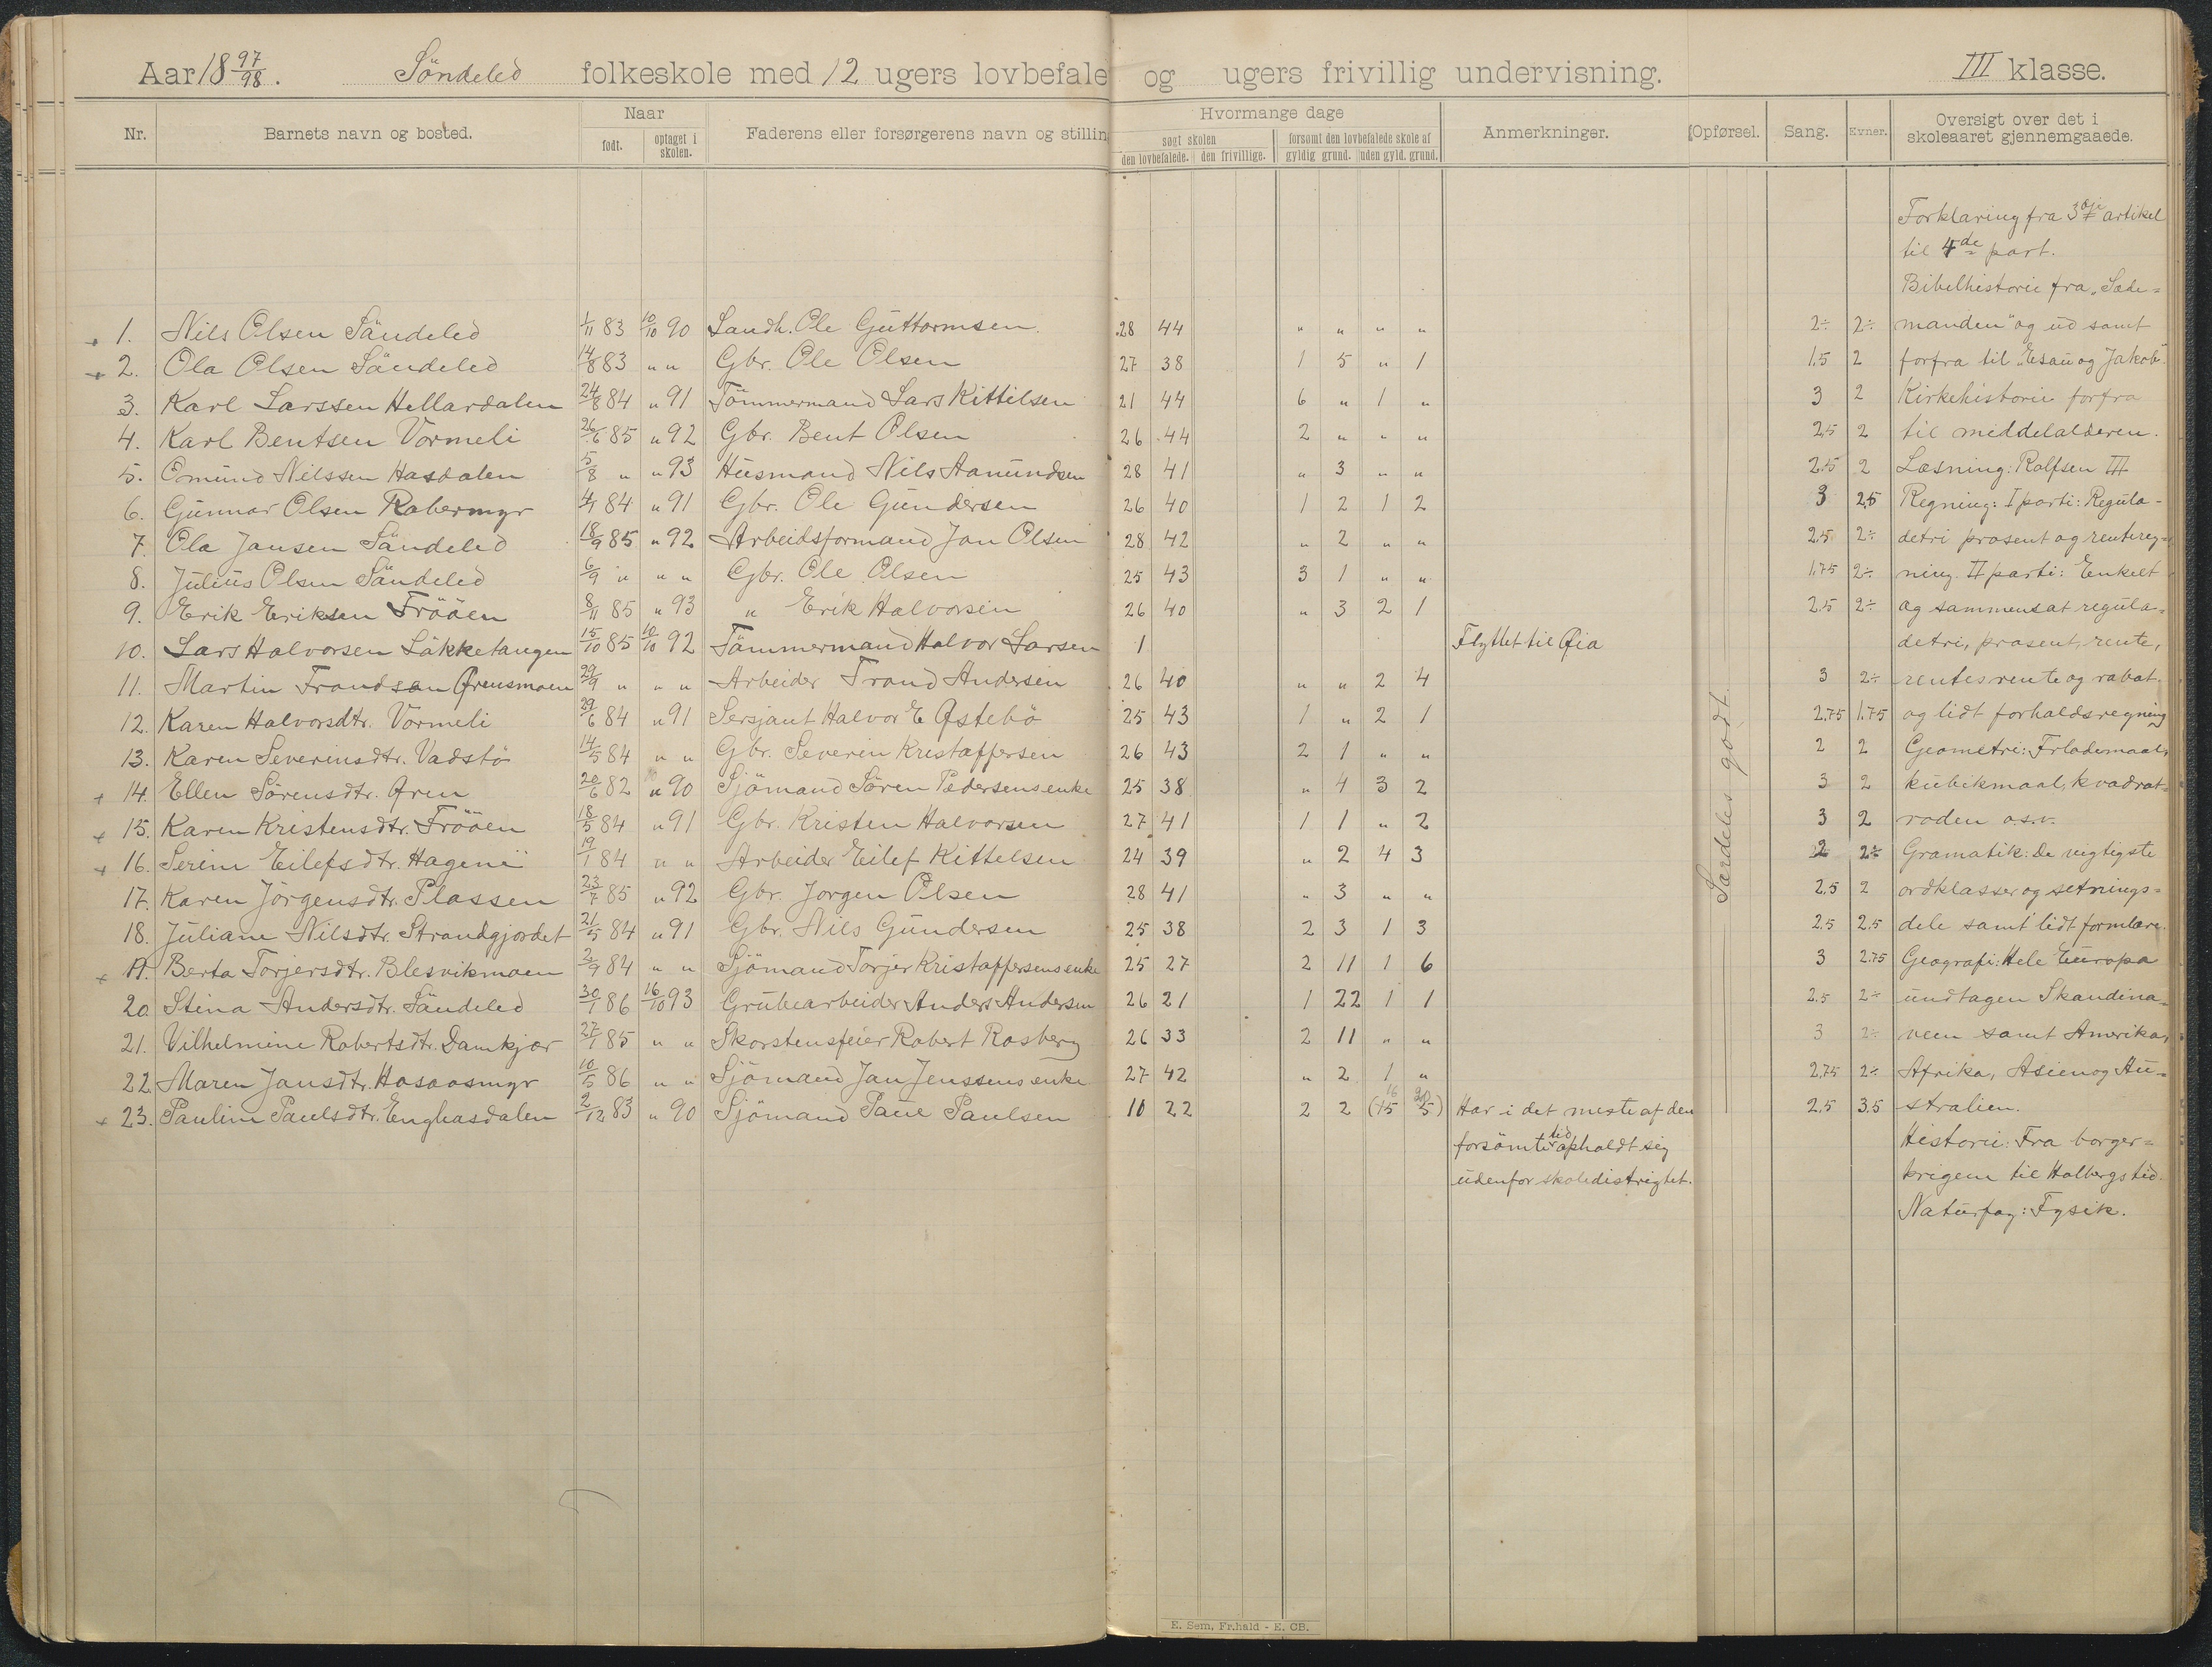 Aar 18 97/98. Söndeled folkeskole med 12 ugers lovbefale og ugers frivillig undervisning. III klasse.
Nr. Barnets navn og bosted. Naar født. optaget i skolen. Faderens eller forsørgerens navn og stillin Hvormange dage søgt skolen den lovbefalede. den frivillige. forsømt den lovbefalede skole af gyldig grund. uden gyld. grund. Anmerkninger. Opførsel. Sang. Evner. Oversigt over det i skoleaaret gjennemgaaede.
Forklaring fra 3dje artikel
til 4de part.
Bibelhistorie fra „Sæde=
+ 1. Nils Olsen Söndeled 1/11 83 10/10 90 Landh. Ole Guttormsen. 28 44 " " " " 2÷ 2÷ manden" og ud samt
+ 2. Ola Olsen Söndeled 14/8 83 " " Gbr. Ole Olsen 27 38 1 5 " 1 1,5 2 forfra til „Esau og Jakob".
3. Karl Larssen Hellardalen 24/8 84 " 91 Tömmermand Lars Kittilsen 21 44 6 " 1 " 3 2 Kirkehistorie forfra
4. Karl Bentsen Vormeli 26/6 85 " 92 Gbr. Bent Olsen 26 44 2 " " " 2,5 2 til middelalderen.
5. Omund Nilssen Hasdalen 5/8 " " 93 Husmand Nils Aanundsen 28 41 " 3 " " 2,5 2 Læsning: Rolfsen III
6. Gunnar Olsen Robermyr 4/1 84 " 91 Gbr. Ole Gundersen 26 40 1 2 1 2 3 2,5 Regning: I parti: Regula-
7. Ola Jansen Söndeled 18/9 85 " 92 Arbeidsformand Jan Olsen 28 42 " 2 " " 2,5 2÷ detri prosent og rentereg=
8. Julius Olsen Söndeled 6/9 " " " Gbr. Ole Olsen 25 43 3 1 " " 1,75 2÷ ning. II parti: Enkelt
9. Erik Eriksen Frööen 8/11 85 " 93 " Erik Halvorsen 26 40 " 3 2 1 2,5 2÷ og sammensat regula=
10. Lars Halvorsen Lökketangen 15/10 85 10/10 92 Tömmermand Halvor Larsen 1 Flyttet til Øia detri, prosent, rente,
11. Martin Trondsen Ørensmoen 29/9 " " " Arbeider Trond Andersen 26 40 " " 2 4 3 2÷ rentesrente og rabat.
12. Karen Halvorsdtr. Vormeli 29/6 84 " 91 Sersjant Halvor E Østebö 25 43 1 " 2 1 2,75 1,75 og lidt forholdsregning
13. Karen Severinsdtr. Vadstö 14/5 84 " " Gbr. Severin Kristoffersen 26 43 2 1 " " 2 2 Geometri: Flademaal,
+ 14. Ellen Sörensdtr. Øren 20/6 82 " 90 Sjömand Sören Pedersens enke 25 38 " 4 3 2 3 2 kubikmaal, kvadrat=
+ 15. Karen Kristensdtr. Frööen 18/5 84 " 91 Gbr. Kristen Halvorsen 27 41 1 1 " 2 3 2 roden o.s.v.
+ 16. Serine Eilefsdtr. Hagene 19/1 84 " " Arbeider Eilef Kittelsen 24 39 " 2 4 3 2 2÷ Gramatik: De vigtigste
17. Karen Jörgensdtr. Plassen 23/7 85 " 92 Gbr. Jorgen Olsen 28 41 " 3 " " 2,5 2 ordklasser og setnings=
18. Juliane Nilsdtr. Strandgjordet 21/5 84 " 91 Gbr. Nils Gundersen 25 38 2 3 1 3 2,5 2,5 dele samt lidt formlære.
+ 19. Berta Torjersdtr. Blesvikmoen 2/9 84 " " Sjömand Torjer Kristoffersens enke 25 27 2 11 1 6 3 2,75 Geografi: Hele Europa
20. Stina Andersdtr. Söndeled 30/1 86 16/10 93 Grubearbeider Anders Andersen 26 21 1 22 1 1 2,5 2÷ undtagen Skandina=
21. Vilhelmine Robertsdtr. Damkjær 27/1 85 " " Skorstensfeier Robert Rosberg 26 33 2 11 " " 3 2÷ vien samt Amerika,
22. Maren Jansdtr. Hasaasmyr 10/5 86 " " Sjömand Jan Jenssens enke 27 42 " 2 1 " 2,75 2÷ Afrika, Asien og Au=
+ 23. Pauline Paulsdtr. Enghasdalen 2/12 83 " 90 Sjömand Paul Paulsen 10 22 2 2 (15 5) Har i det meste af den 2,5 3,5 stralien.
forsömte tid opholdt sig Historie: Fra borger=
udenfor skoledistriktet. krigene til Holbergs tid.
Naturfag: Fysik.
Særdeles godt
E. Sem, Fr.hald - E. CB.